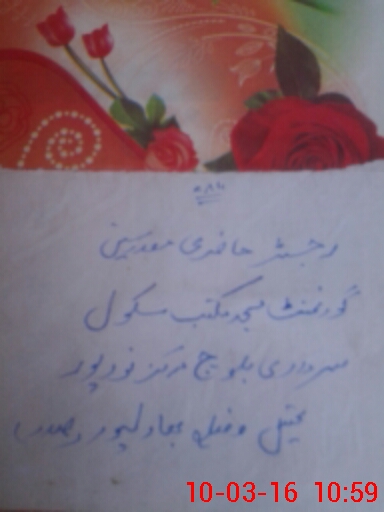 ۷۸۶
رجسٹر حاضری معدرسین
گورنمنٹ مسجد مکتب سکول
سرداری بلوچ مرکز نورپور
تحصیل وضلع بہاولپور (صدر)
10-03-16 10:59